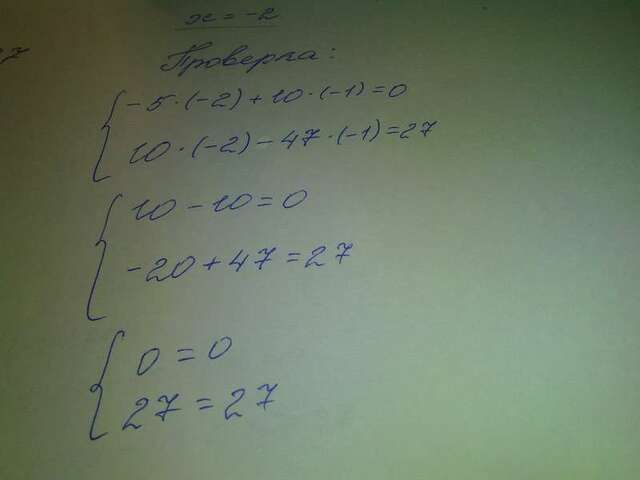 x = -2
27
Проверка:
-5·(-2)+10·(-1)=0
10·(-2)-47·(-1)=27
10-10=0
-20+47=27
0=0
27=27